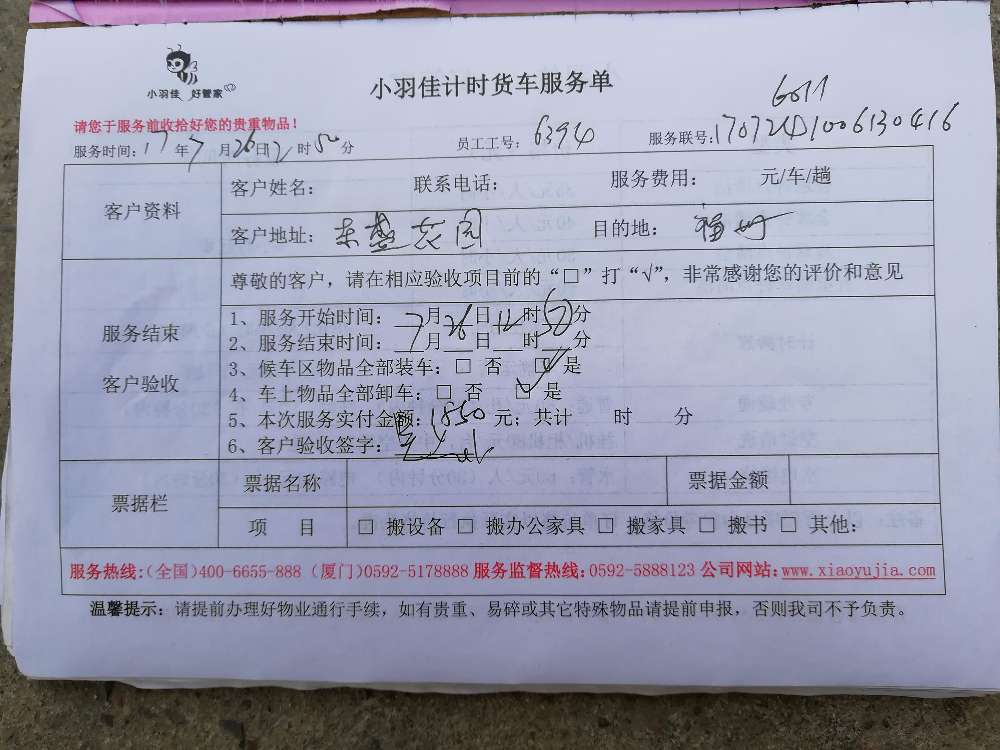 小羽佳 好管家
小羽佳计时货车服务单
6011
请您于服务前收拾好您的贵重物品！
服务时间：17年7月26日12时50分 员工工号：6394 服务联号：
客户资料
客户姓名： 联系电话： 服务费用： 元/车/趟
客户地址：东盛花园 目的地：
尊敬的客户，请在相应验收项目前的“□”打“√”，非常感谢您的评价和意见
服务结束
客户验收
1、服务开始时间：7月26日12时50分
2、服务结束时间：7月__日__时__分
3、候车区物品全部装车：□ 否 ☑是
4、车上物品全部卸车：□ 否 ☑是
5、本次服务实付金额：1850元；共计 时 分
6、客户验收签字：
票据栏
票据名称 票据金额
项 目 □ 搬设备 □ 搬办公家具 □ 搬家具 □ 搬书 □ 其他：
服务热线：(全国)400-6655-888 (厦门)0592-5178888 服务监督热线：0592-5888123 公司网站：www.xiaoyujia.com
温馨提示：请提前办理好物业通行手续，如有贵重、易碎或其它特殊物品请提前申报，否则我司不予负责。